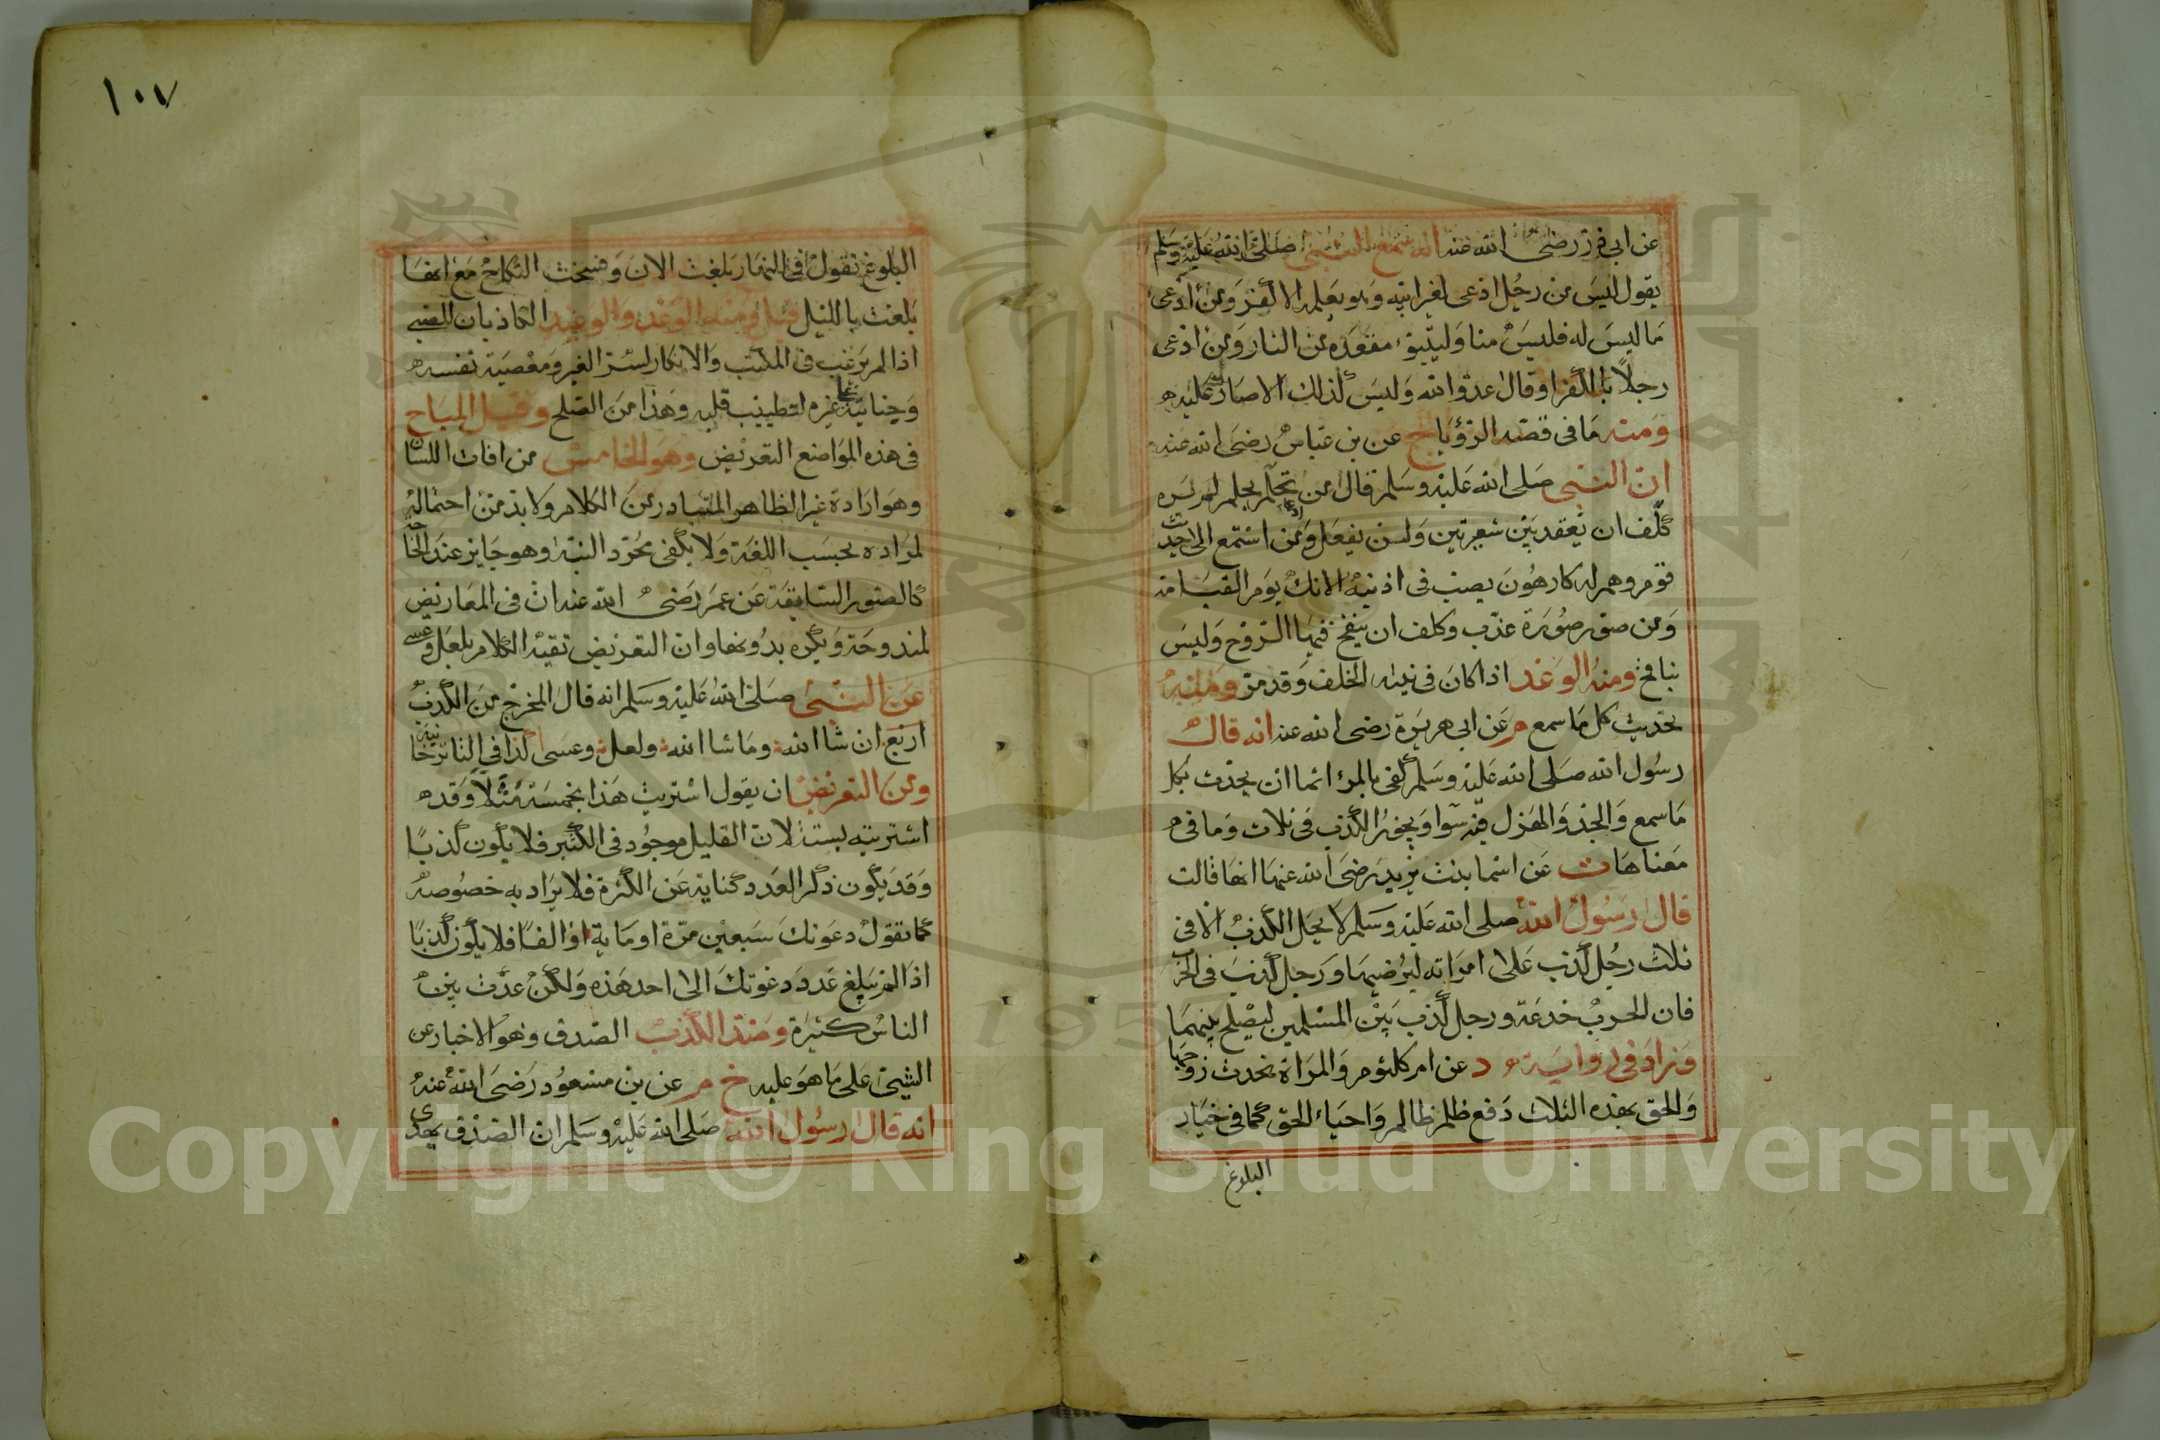 عن ابى ذر رضى الله عنه انه سمع النبى صلى الله عليه وسلم
يقول ليس من رجل ادعى لغير ابيه وهو يعلمه الا كفر ومن ادعى
ما ليس له فليس منا وليتبوء مقعده من النار ومن ادعى
رجلاً بالكفر او قال عدو الله وليس كذلك الا صار عليه
ومنه ما فى قصه الرؤيا خ عن بن عباس رضى الله عنه
ان النبى صلى الله عليه وسلم قال من تحلم بحلم لم يره
كلف ان يعقد بين شعيرتين ولن يفعل ومن استمع الى حديث
قوم وهم له كارهون يصب فى اذنيه الانك يوم القيامة
ومن صور صورة عذب وكلف ان ينفخ فيها الروح وليس
بنافخ ومنه الوعد اذا كان فى نيته الخلف وقد مر ومنه
تحديث كل ما سمع م عن ابى هريرة رضى الله عنه انه قال
رسول الله صلى الله عليه وسلم كفى بالمرء اثما ان يحدث بكل
ما سمع والجد والهزل فيه سوا ويجوز الكذب فى ثلاث وما فى
معناها ت عن اسما بنت يزيد رضى الله عنها انها قالت
قال رسول الله صلى الله عليه وسلم لا يحل الكذب الا فى
ثلث رجل كذب على امراته ليرضيها ورجل كذب فى الحرب
فان الحرب خدعة ورجل كذب بين المسلمين ليصلح بينهما
وزاد فى رواية د عن ام كلثوم والمراة تحدث زوجها
والحق بهذه الثلاث دفع ظلم ظالم واحياء الحق كما فى خيار
البلوغ
١٠٧
البلوغ تقول فى النهار بلغت الان وفسخت النكاح مع انها
بلغت بالليل قيل ومنه الوعد والوعيد الكاذبان للصبى
اذا لم يرغب فى المكتب والانكار لسر الغير ومعصية نفسه
وجنايته على غيره لتطييب قلبه وهذا من الصلح وقيل المباح
فى هذه المواضع التعريض وهو الخامس من افات اللسان
وهو ارادة غير الظاهر المتبادر من الكلام ولا بد من احتماله
لمراده بحسب اللغة ولا يكفى مجرد النية وهو جايز عند الحاجة
كالصور السابقة عن عمر رضى الله عنه ان فى المعاريض
لمندوحة ويكره بدونها وان التعريض تقيد الكلام بلعل وعسى
عن النبى صلى الله عليه وسلم انه قال المخرج من الكذب
اربع ان شا الله وما شا الله ولعل وعسى كذا فى التاترخانية
ومن التعريض ان يقول اشتريت هذا بخمسة مثلاً وقد
اشتريته بست لان القليل موجود فى الكثير فلا يكون كذبًا
وقد يكون ذكر العدد كناية عن الكثرة فلا يراد به خصوصه
كما تقول دعوتك سبعين مرة او ماية او الفًا فلا يكون كذبًا
اذا لم يبلغ عدد دعوتك الى احد هذه ولكن عدت بين
الناس كثيرة وضد الكذب الصدق وهو الاخبار عن
الشئ على ما هو عليه خ م عن بن مسعود رضى الله عنه
انه قال رسول الله صلى الله عليه وسلم ان الصدق يهدى
Copyright © King Saud University
195